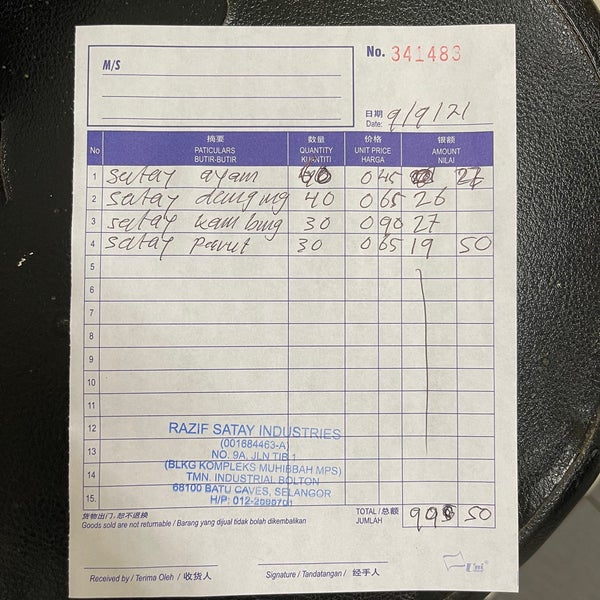 M/S
No. 341483
日期
Date: 9/9/21
No 摘要 PATICULARS BUTIR-BUTIR 数量 QUANTITY KUANTITI 价格 UNIT PRICE HARGA 银额 AMOUNT NILAI
1 satay ayam 0 45 27
2 satay denging 40 0 65 26
3 satay kambing 30 0 90 27
4 satay parut 30 0 65 19 50
5
6
7
8
9
10
11
12
13
14
15.
RAZIF SATAY INDUSTRIES
(001684463-A)
NO. 9A, JLN TIB 1
(BLKG KOMPLEKS MUHIBBAH MPS)
TMN. INDUSTRIAL BOLTON
68100 BATU CAVES, SELANGOR
H/P: 012-2695701
货物出门,恕不退换
Goods sold are not returnable / Barang yang dijual tidak bolah dikembalikan
TOTAL / 总额
JUMLAH 99 50
Received by / Terima Oleh / 收货人
Signature / Tandatangan / 经手人